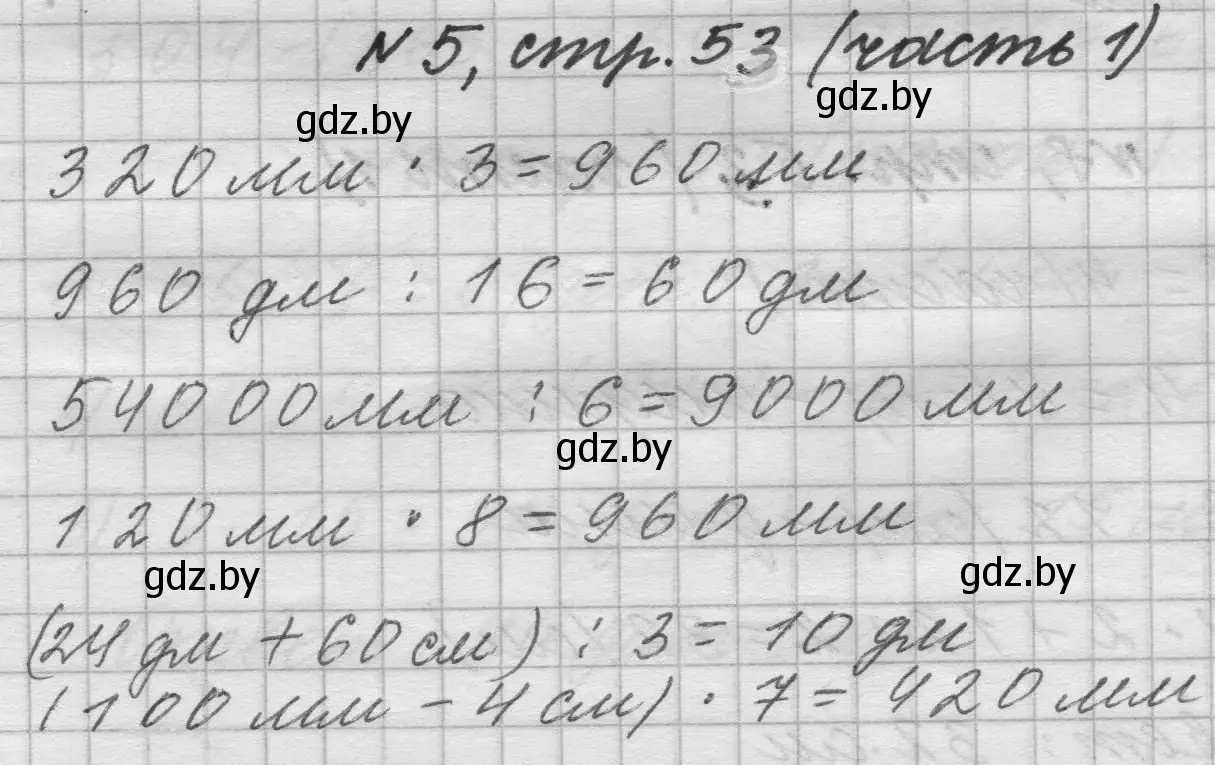 N 5, стр. 53 (часть 1)
gdz.by
gdz.by
320 мм · 3 = 960 мм
960 дм : 16 = 60 дм
54000 мм : 6 = 9000 мм
gdz.by
120 мм · 8 = 960 мм
gdz.by
gdz.by
(24 дм + 60 см) : 3 = 10 дм
(100 мм - 4 см) · 7 = 420 мм